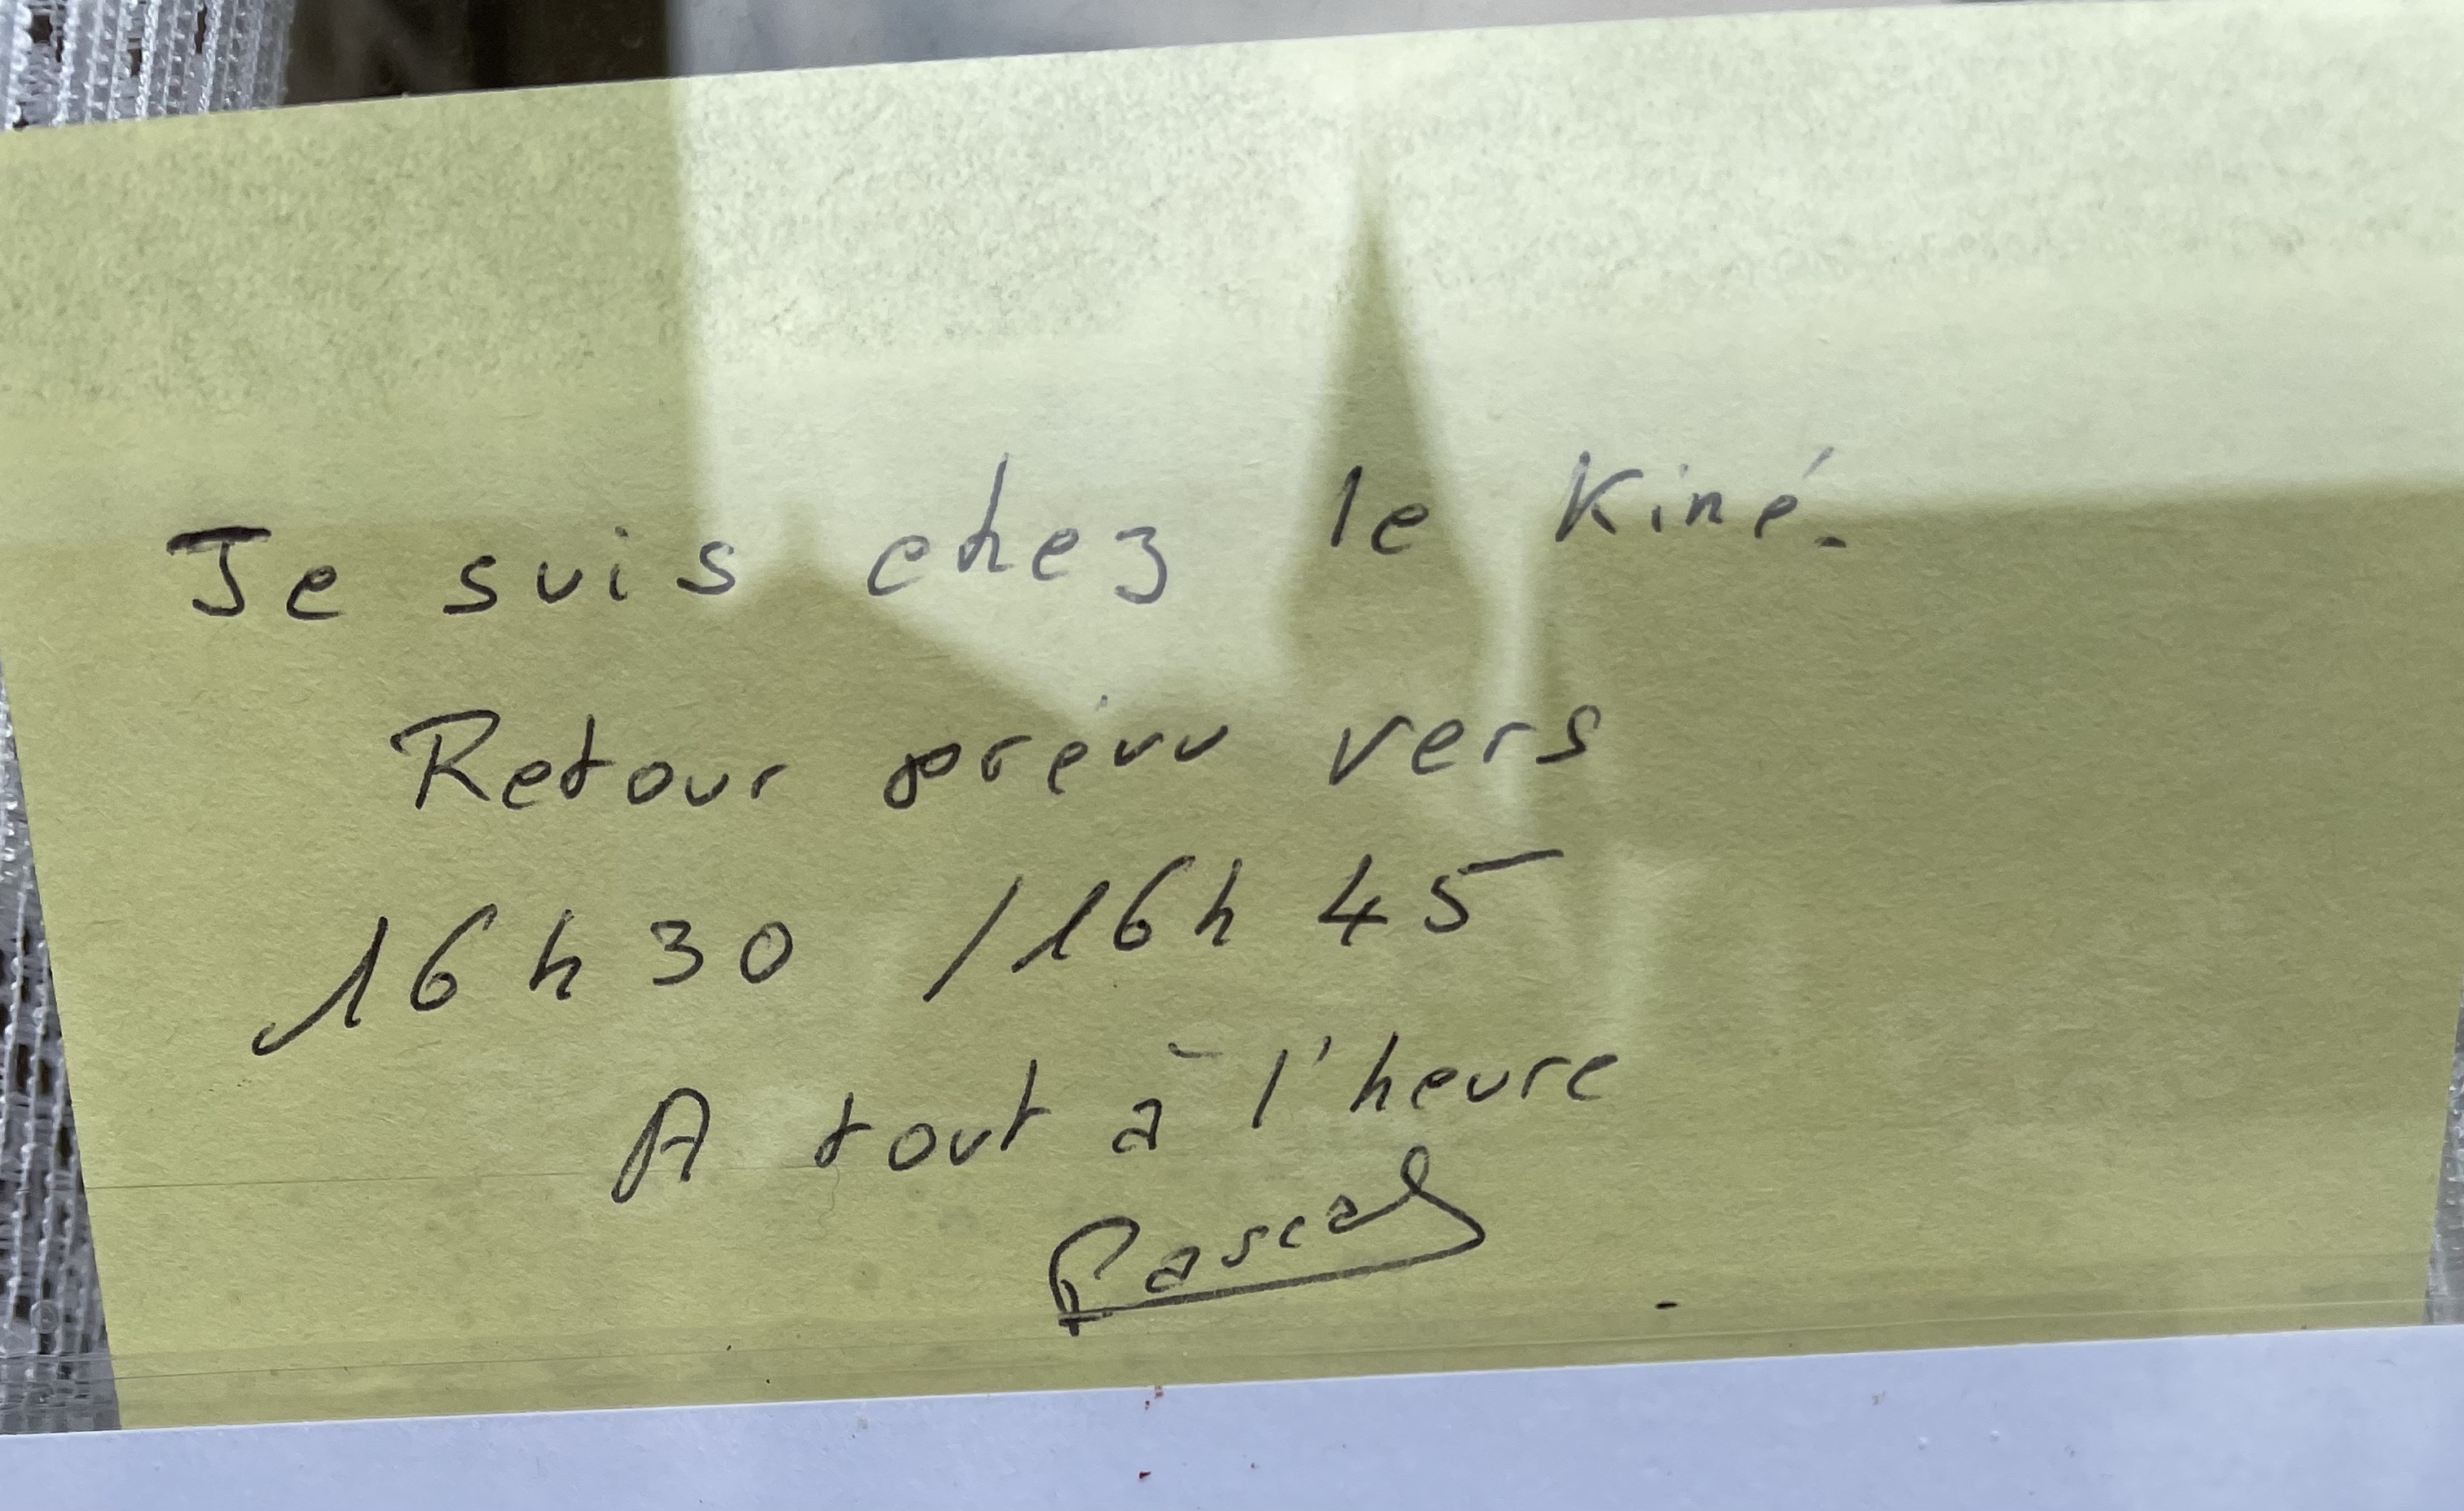 Je suis chez le Kiné.
Retour prévu vers
16h30 / 16h45
A tout à l'heure
Pascal